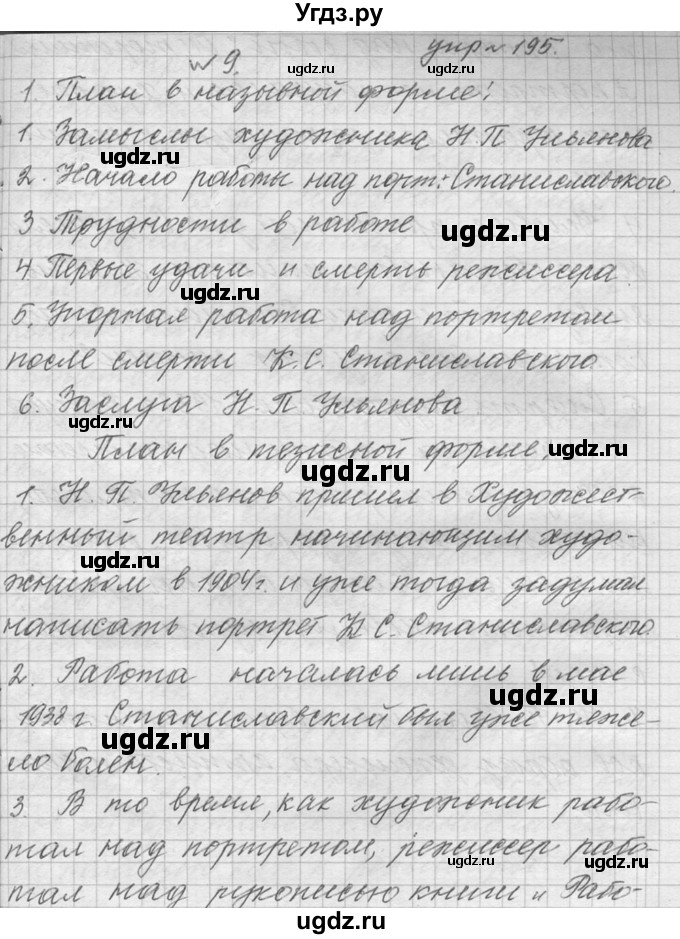 Угдз.ру
№ 9. упр № 195.
ugdz.ru ugdz.ru
1. План в назывной форме:
1. Замыслы художника Н. П Ульянова
ugdz.ru
2. Начало работы над порт. Станиславского.
3 Трудности в работе ugdz.ru
4 Первые удачи и смерть режиссера.
ugdz.ru
5. Упорная работа над портретом
после смерти К. С. Станиславского
6. Заслуга Н. П. Ульянова
ugdz.ru ugdz.ru
План в тезисной форме.
ugdz.ru
1. Н. П. Ульянов пришел в Художест-
венный театр начинающим худо-
ugdz.ru
жником в 1904г. и уже тогда задумал
написать портрет К С. Станиславского.
2. Работа началась лишь в мае
ugdz.ru
1938 г. Станиславский был уже тяже-
ugdz.ru
ло болен.
3. В то время, как художник рабо-
тал над портретом, режиссер рабо-
ugdz.ru
тал над рукописью книги „ Рабо-
ugdz.ru
Угдз.ру